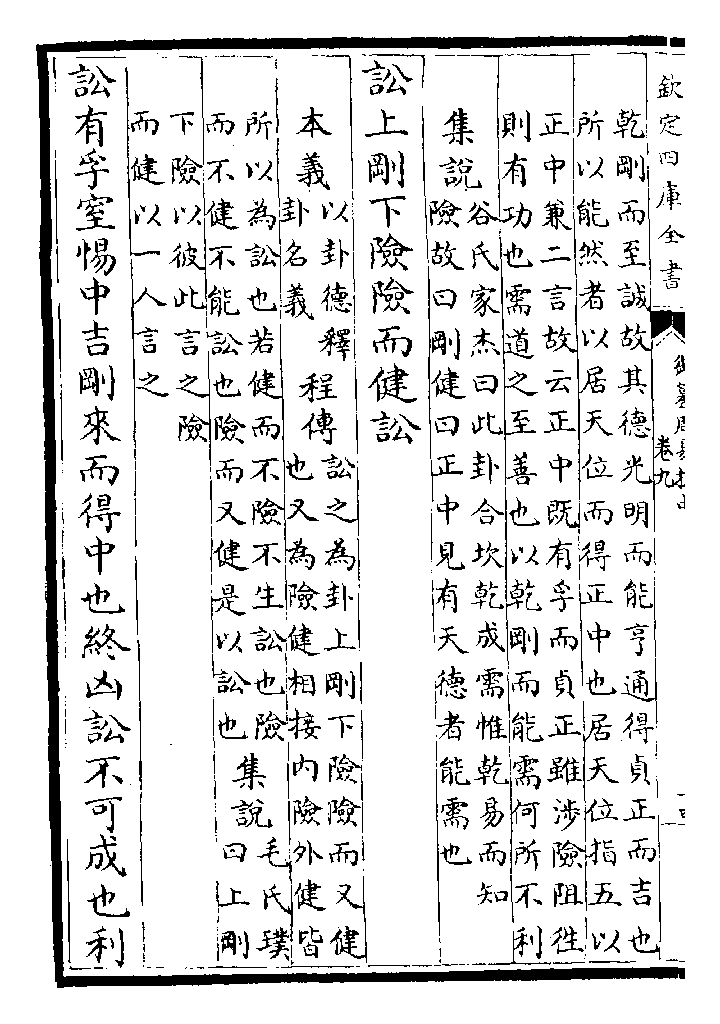 欽定四庫全書
御纂周易折中
卷九
乾剛而至誠故其德光明而能亨通得貞正而吉也
所以能然者以居天位而得正中也居天位指五以
正中兼二言故云正中既有孚而貞正雖涉險阻往
則有功也需道之至善也以乾剛而能需何所不利
集說
谷氏家杰曰此卦合坎乾成需惟乾易而知
險故曰剛健曰正中見有天德者能需也
訟上剛下險險而健訟
本義
以卦德釋
卦名義
程傳
訟之為卦上剛下險險而又健
也又為險健相接內險外健皆
所以為訟也若健而不險不生訟也險
而不健不能訟也險而又健是以訟也
集說
毛氏璞
曰上剛
下險以彼此言之險
而健以一人言之
訟有孚窒惕中吉剛來而得中也終凶訟不可成也利